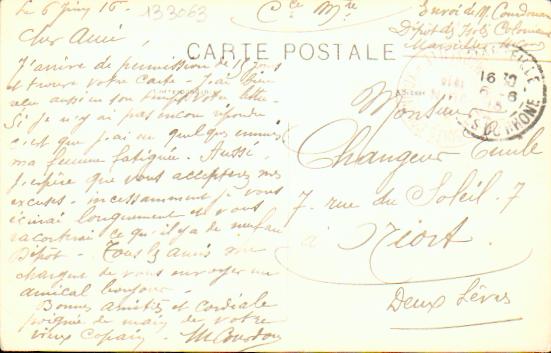 Le 6 Juin 16 -
133063
Cce Mre
Envoi de M.
Dépôt des Isolés
Marseille
Cher Ami,
CARTE POSTALE
J'arrive de permission de 15 jours
et trouve votre carte - J'ai bien
reçu aussi en son temps votre lettre
Si je n'y ai pas encore répondu
c'est que j'ai eu quelques ennuis
ma femme fatiguée. Aussi,
j'espère que vous accepterez mes
excuses - incessamment je vous
écrirai longuement et vous
raconterai ce qu'il y a de neuf au
Dépôt - Tous les amis me
chargent de vous envoyer un
amical bonjour -
Bonnes amitiés et cordiale
poignée de main de votre
vieux copain -
MARSEILLE
16 30
6 - 6
16
BS DU RHONE
Monsieur
Changeur Emile
7 - rue du Soleil - 7
à Niort -
Deux Sèvres